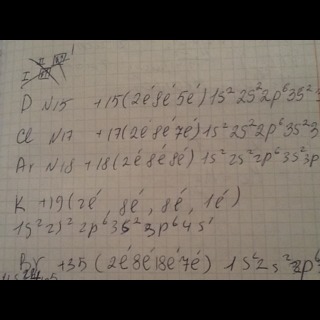 D N15 +15(2é8é5é)1s²2s²2p⁶3s²
Cl N17 +17(2é8é7é)1s²2s²2p⁶3s²3
Ar N18 +18(2é8é8é) 1s²2s²2p⁶3s²3p
K +19(2é, 8é, 8é, 1é)
1s²2s²2p⁶3s²3p⁶4s¹
Br +35 (2é8é18é7é) 1s²2s²2p⁶